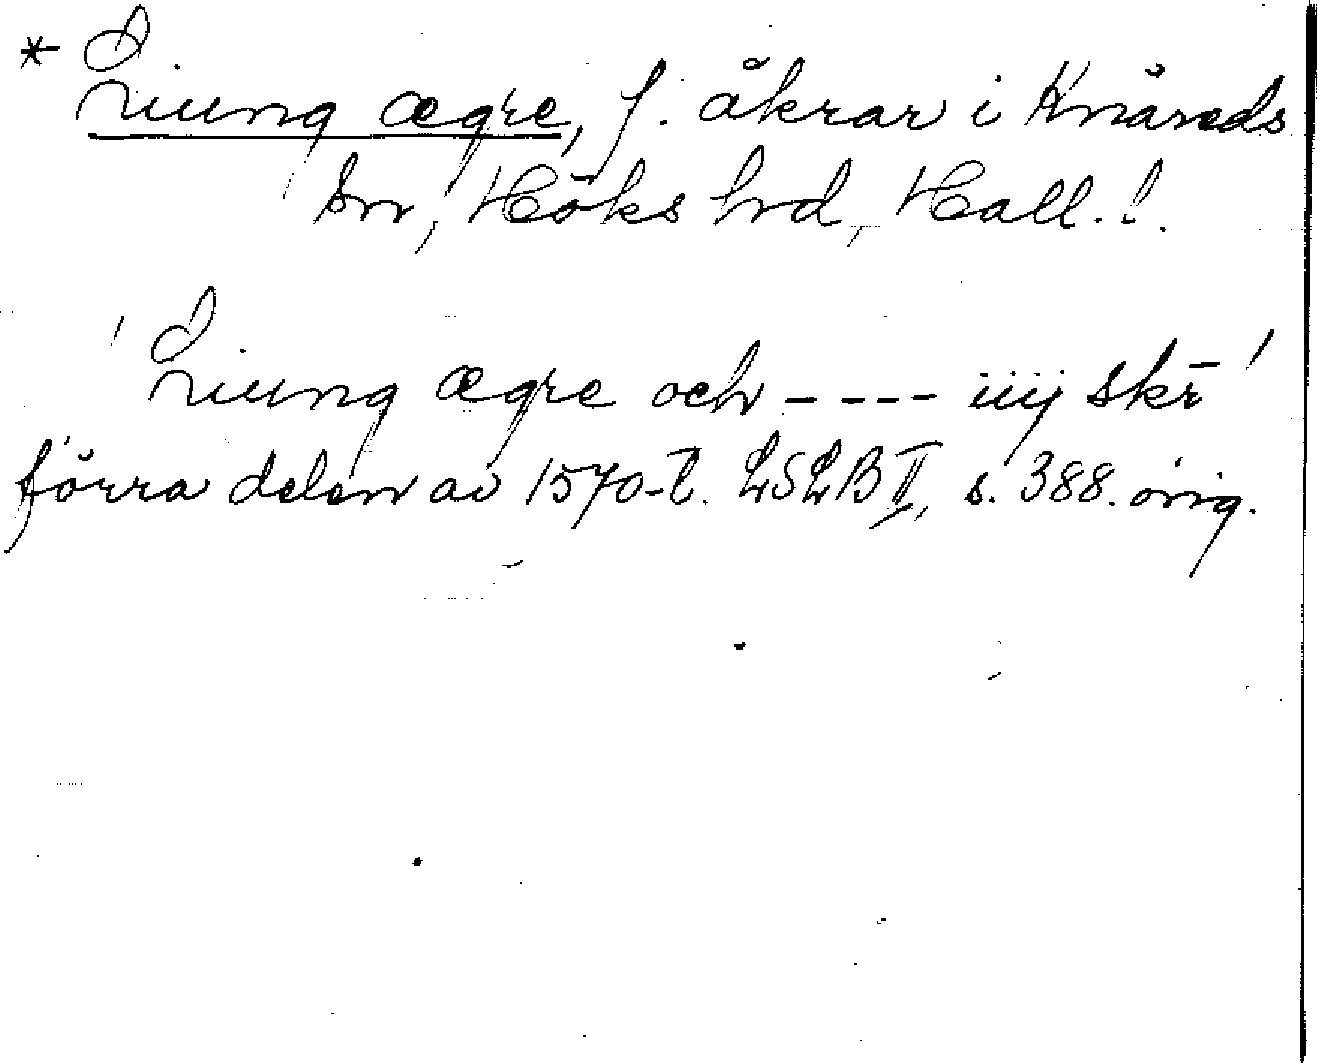 * Liung ægre, f. åkrar i Knäreds
sn, Höks hrd, Hall. l.
' Liung ægre och - - - - iiij skr̄ '
förra delen av 1570-t. LSLB II, s. 388. orig.